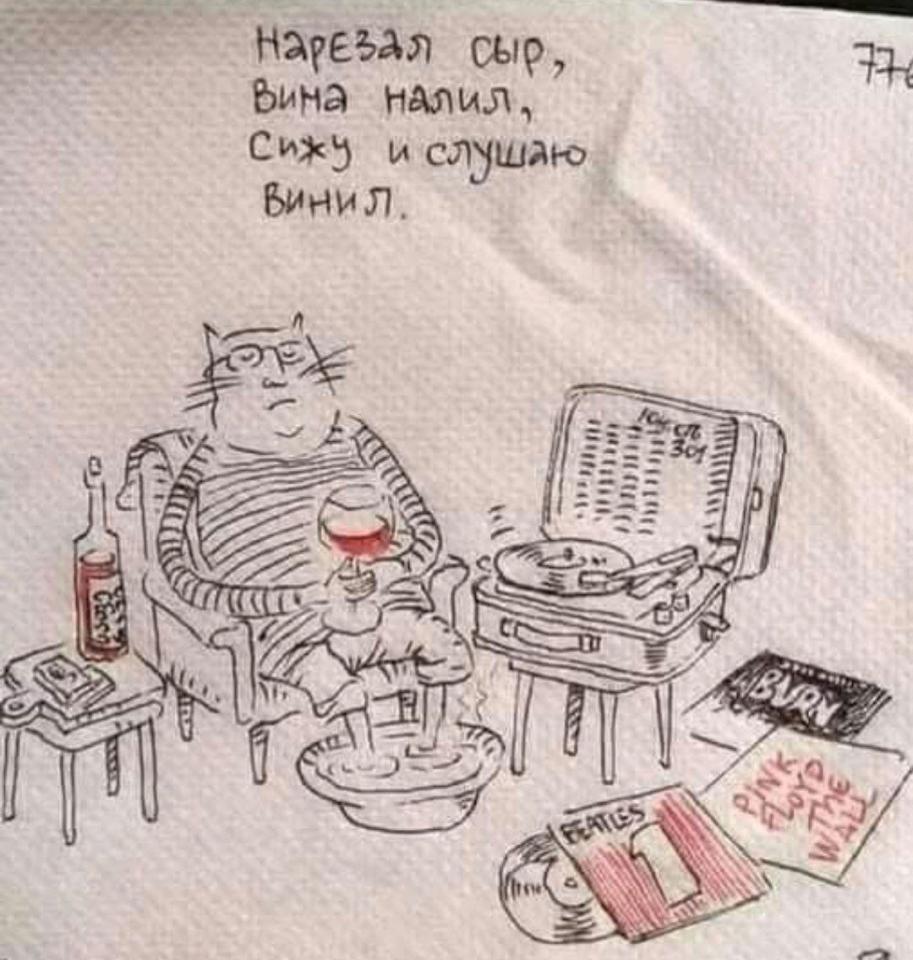 Нарезал сыр,
Вина налил,
Сижу и слушаю
Винил.
Юность
301
BURN
PINK
FLOYD
THE
WALL
BEATLES
1